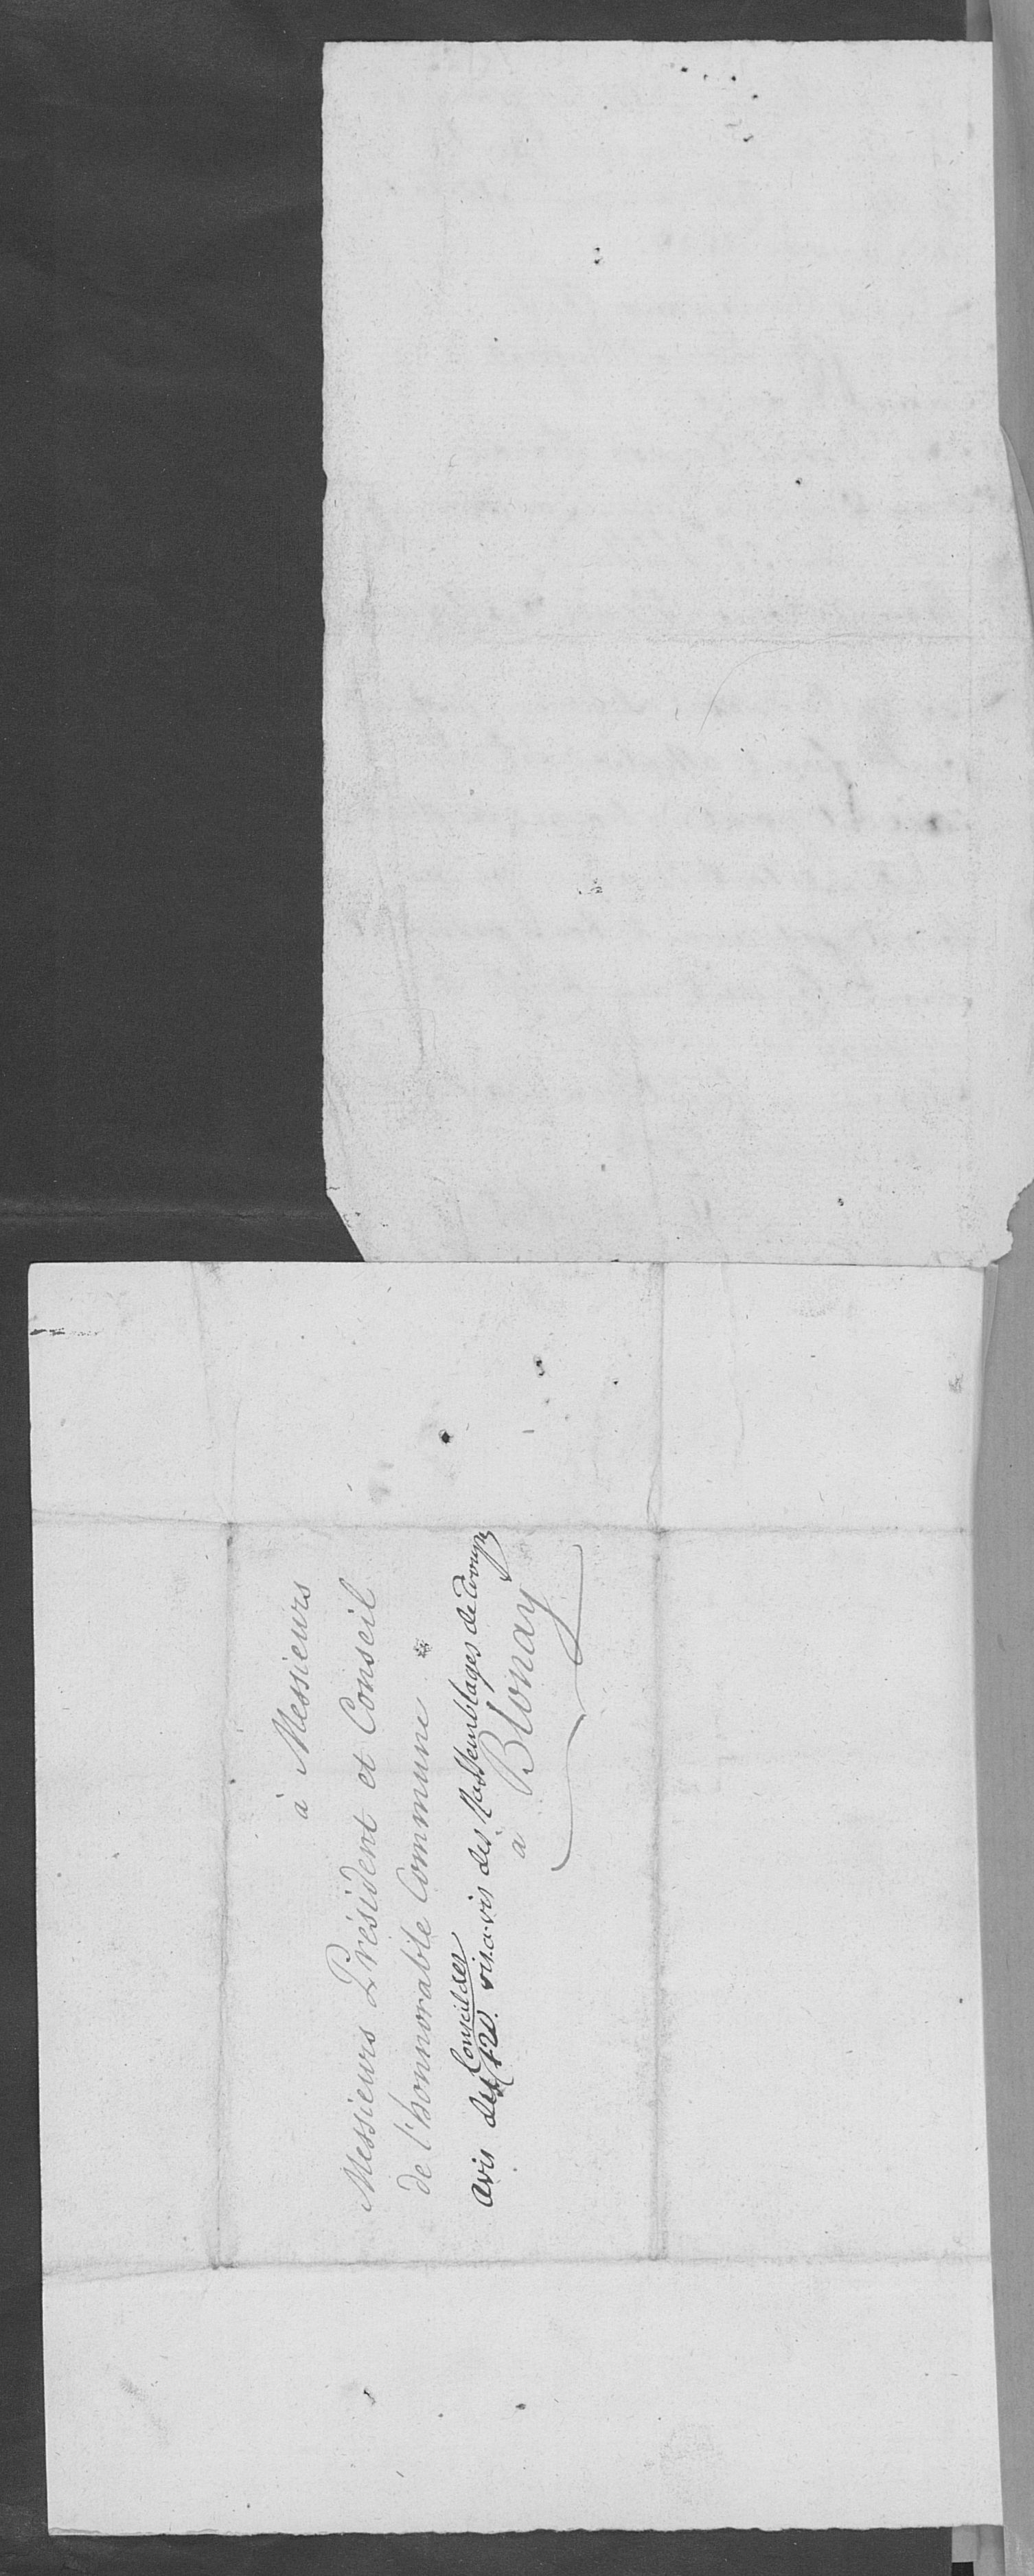 à Messieurs
Messieurs Président et Conseil
de l'honnorable Commune
Conseil des
avis des 120. vis-a-vis des Rassemblages de Troupes
a Blonay